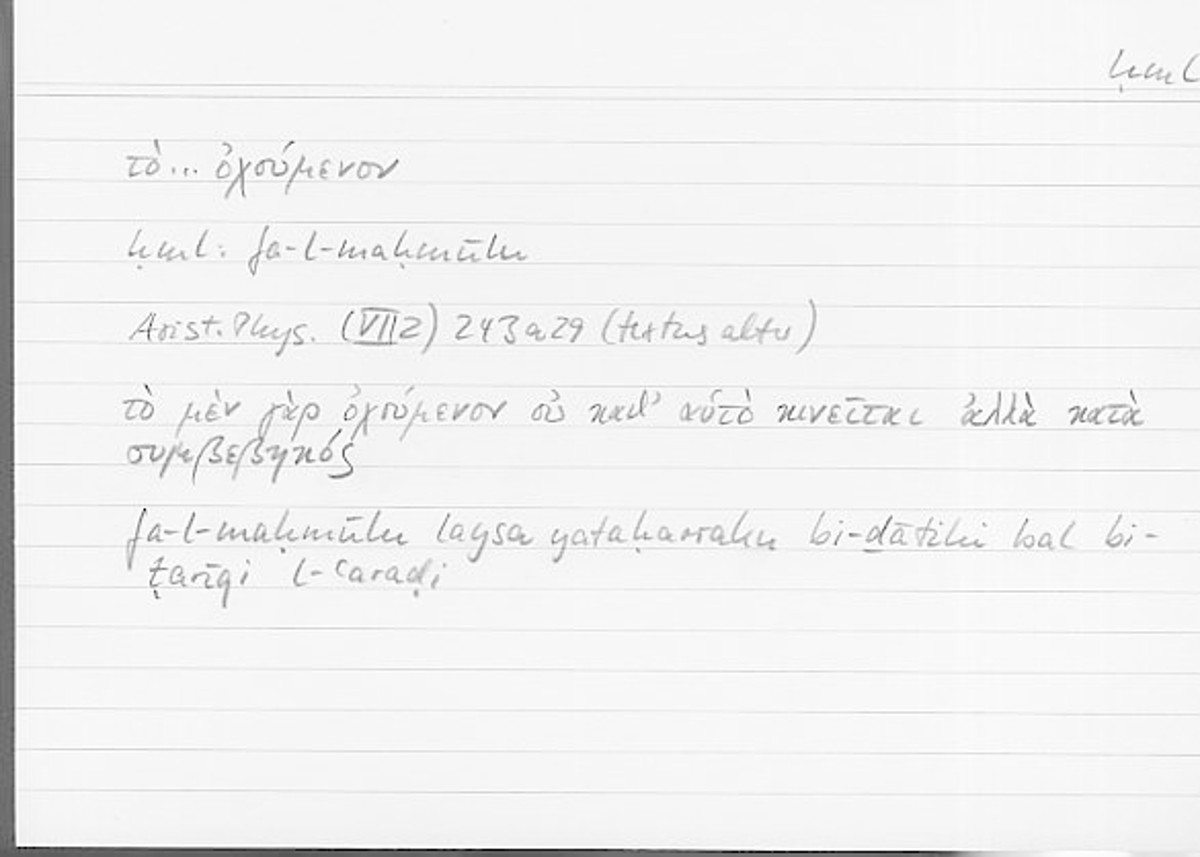 ḥml
τὸ... ὀχούμενον
ḥml: fa-l-maḥmūlu
Arist. Phys. (VII 2) 243a29 (textus alter)
τὸ μὲν γὰρ ὀχούμενον οὐ καθ' αὑτὸ κινεῖται ἀλλὰ κατὰ
συμβεβηκός
fa-l-maḥmūlu laysa yataḥarraku bi-ḏātihi bal bi-
ṭarīqi l-ʿaraḍi